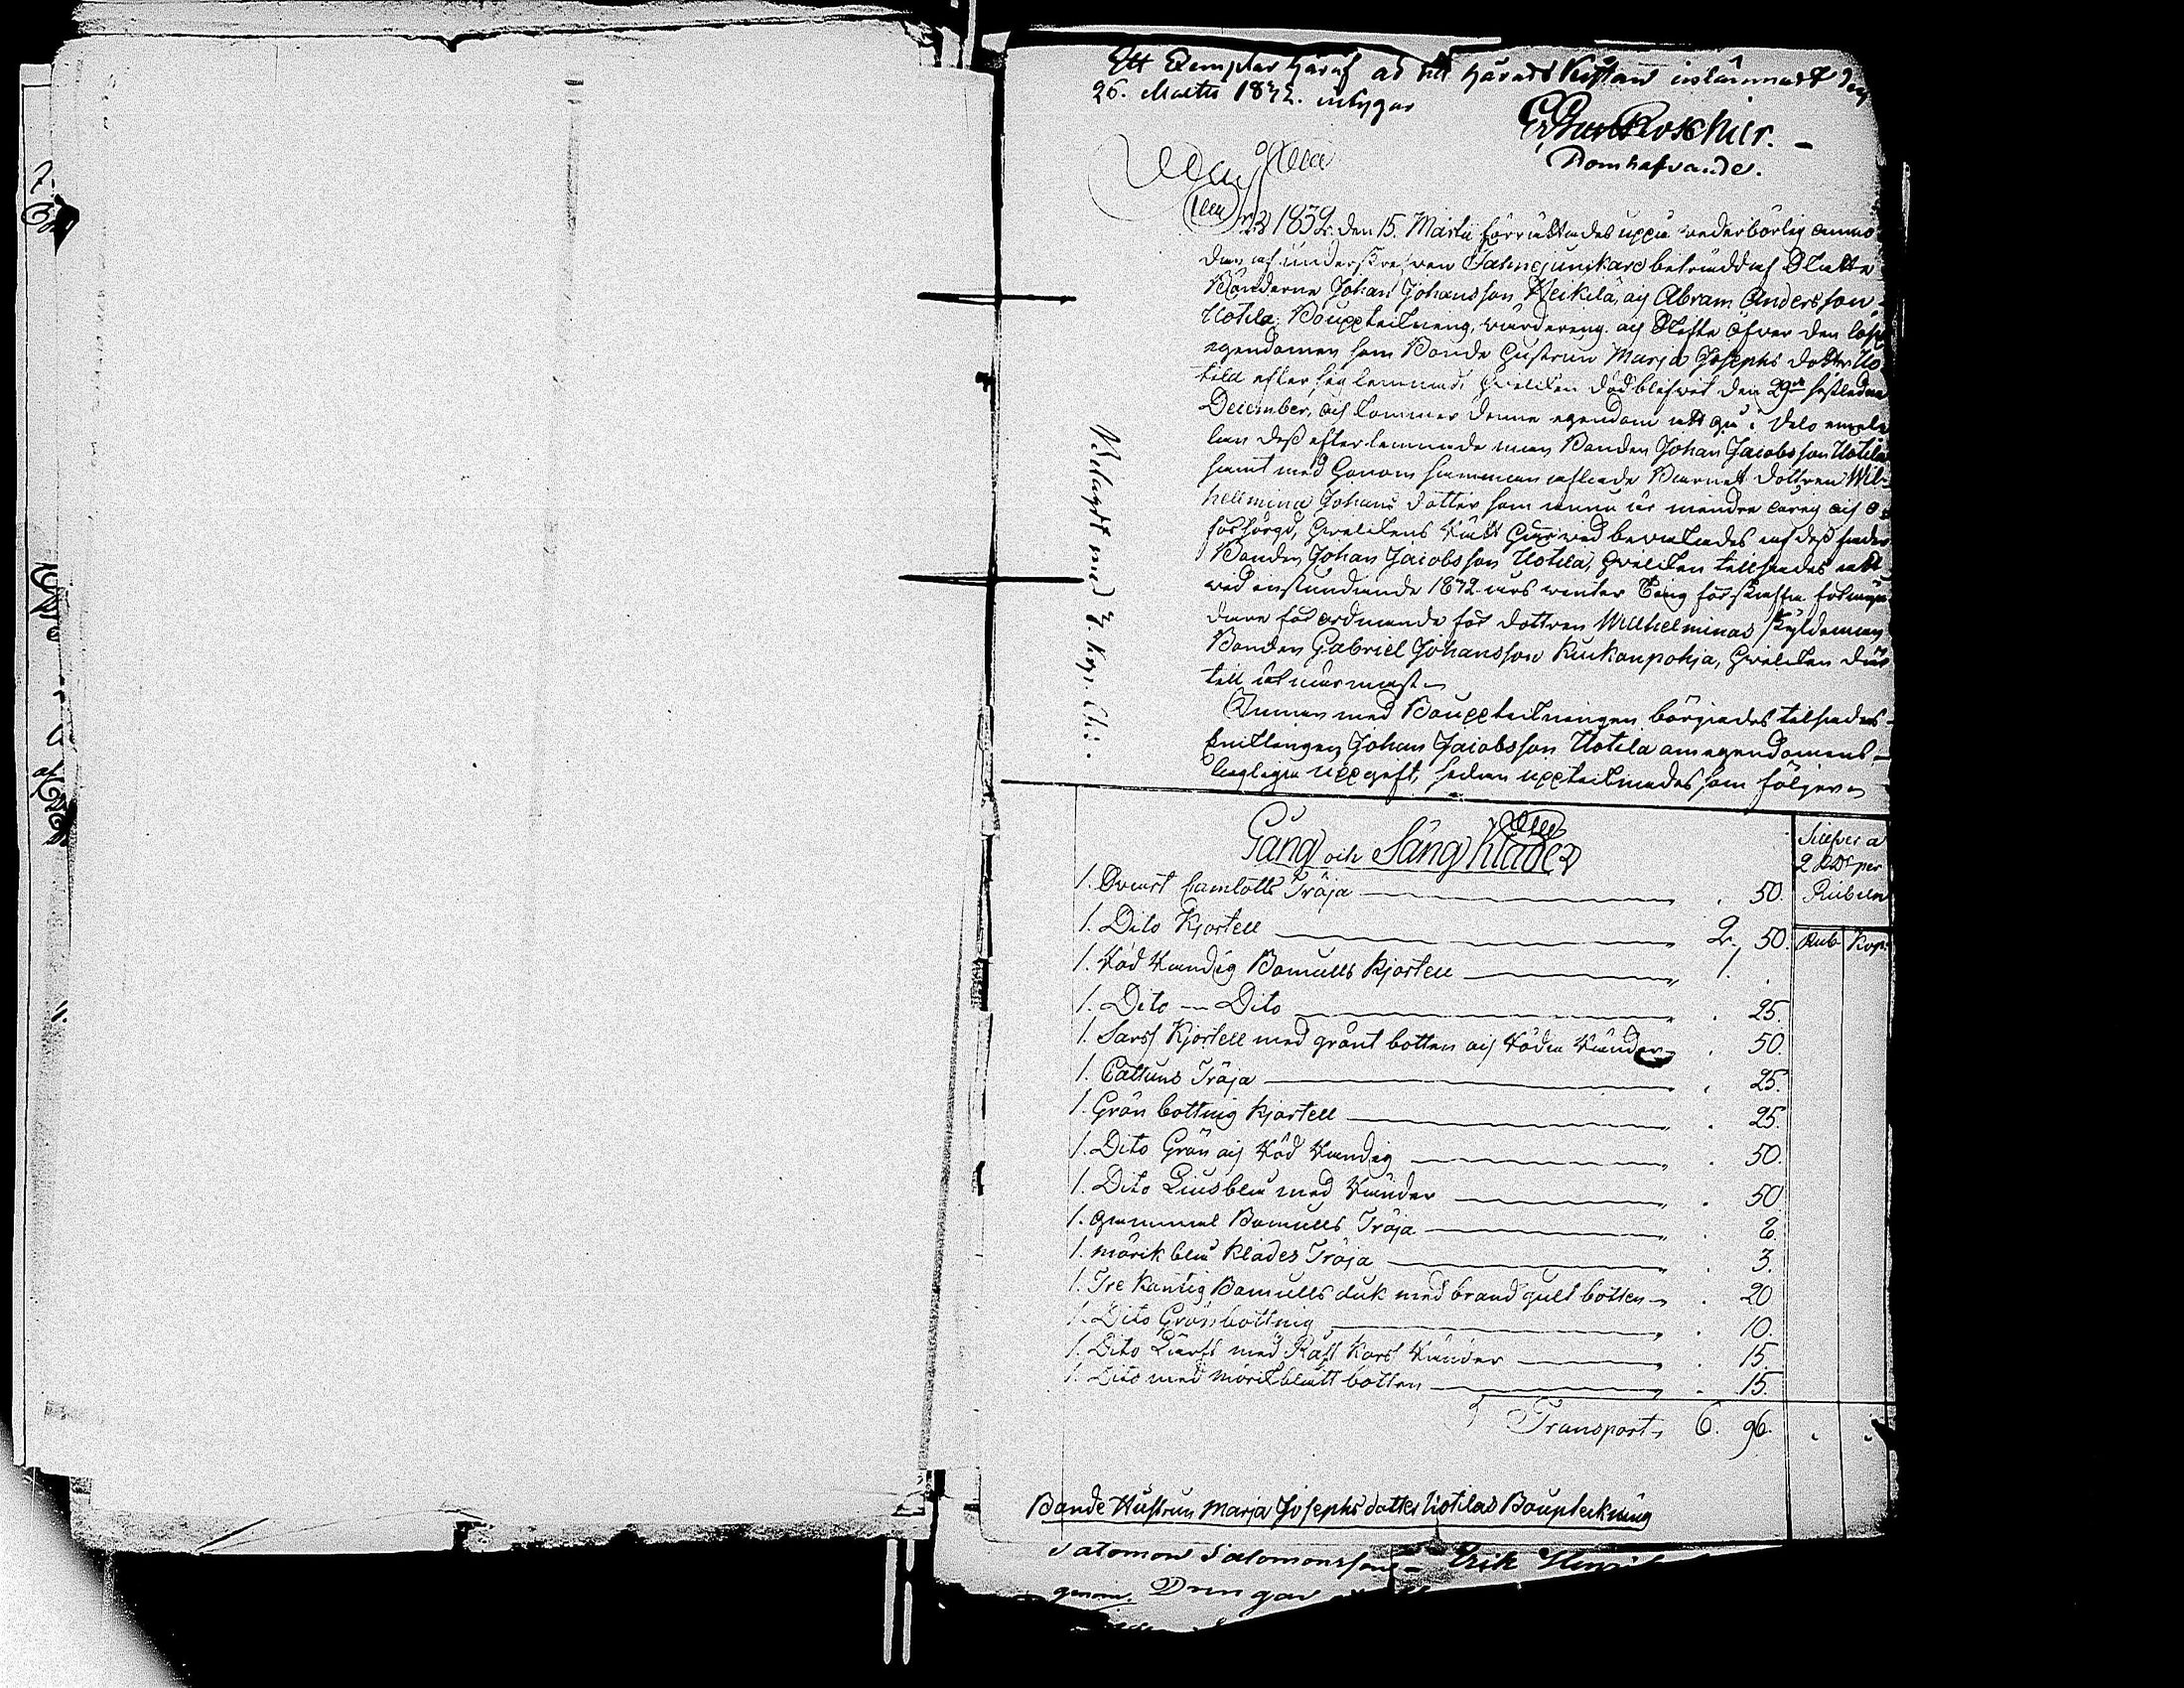 Ett Exemplar häraf är till Härads Kistan inlämnadt den
26. Martii 1842. intygar
Domhafvande.
År 1832 den 15. Martii förrättades uppå vederbörlig anmo-
dan af underskrefven Fahnejunkare beträdd af
Bönderne Johan Johansson Heikilä, och Abram Andersson
Uotila, Bouppteikning, värdering och öfver den lösa
egendomen som Bonde Hustrun Marja Josephs dotter Uo-
tila efter sig lemnadt hvilken död blefvet den 29de
December, och kommer denne egendom att gå i
lan dess efterlemnade man Bonden Johan Jacobsson Uotila
samt med honom sammanaflade Barnet dottren Wil-
hellmina Johans dotter som ännu är mindre årig och o-
försörgd, hvilkens rätt härvid bevakades af dess fader
Bonden Johan Jacobsson Uotila, hvilken tillsades att
vid instundande 1832 års vinter Ting förskaffa förmyn
dare förordnande för dottren Wilhelminas
Bonden Gabriel Johansson Kiukanpohja, hvilken där
till är närmast
Innan med Bouppteikningen börjades tilsades
Enklingen Johan Jacobsson Uotila om egendomens
uppgift, sedan uppteiknades som följer
Belagdt med 4. kop. Ch: .
Gång och Säng Kläder
Silfver a
2 RDr per
Rubeln
Rub Kop:
1. Svart Camlotts Tröja . 50.
1. Dito Kjortell 2. 50.
1. Röd Randig Bomulls Kjortell 1. .
1. Dito — Dito . 25.
1. Sars Kjortell med grönt botten och röda Ränder . 50.
1. Cattuns Tröja . 25.
1. Grön bottnig Kjortell . 25.
1. Dito Grön och Röd Randig . 50.
1. Dito Liusblå med Ränder . 50.
1. gammal Bomulls Tröja . 8.
1. mörik blå Klädes Tröja . 3.
1. Tre Kantig Bomulls duk med brand gult botten . 20
1. Dito Grönbottnig . 10.
1. Dito Lärfts med Ränder . 15.
1. Dito med mörikblått botten . 15.
Transport 6. 96.
Bonde Hustrun Marja Josephs dotter Uotilas Boupteckning
Salomon Salomonsson Erik